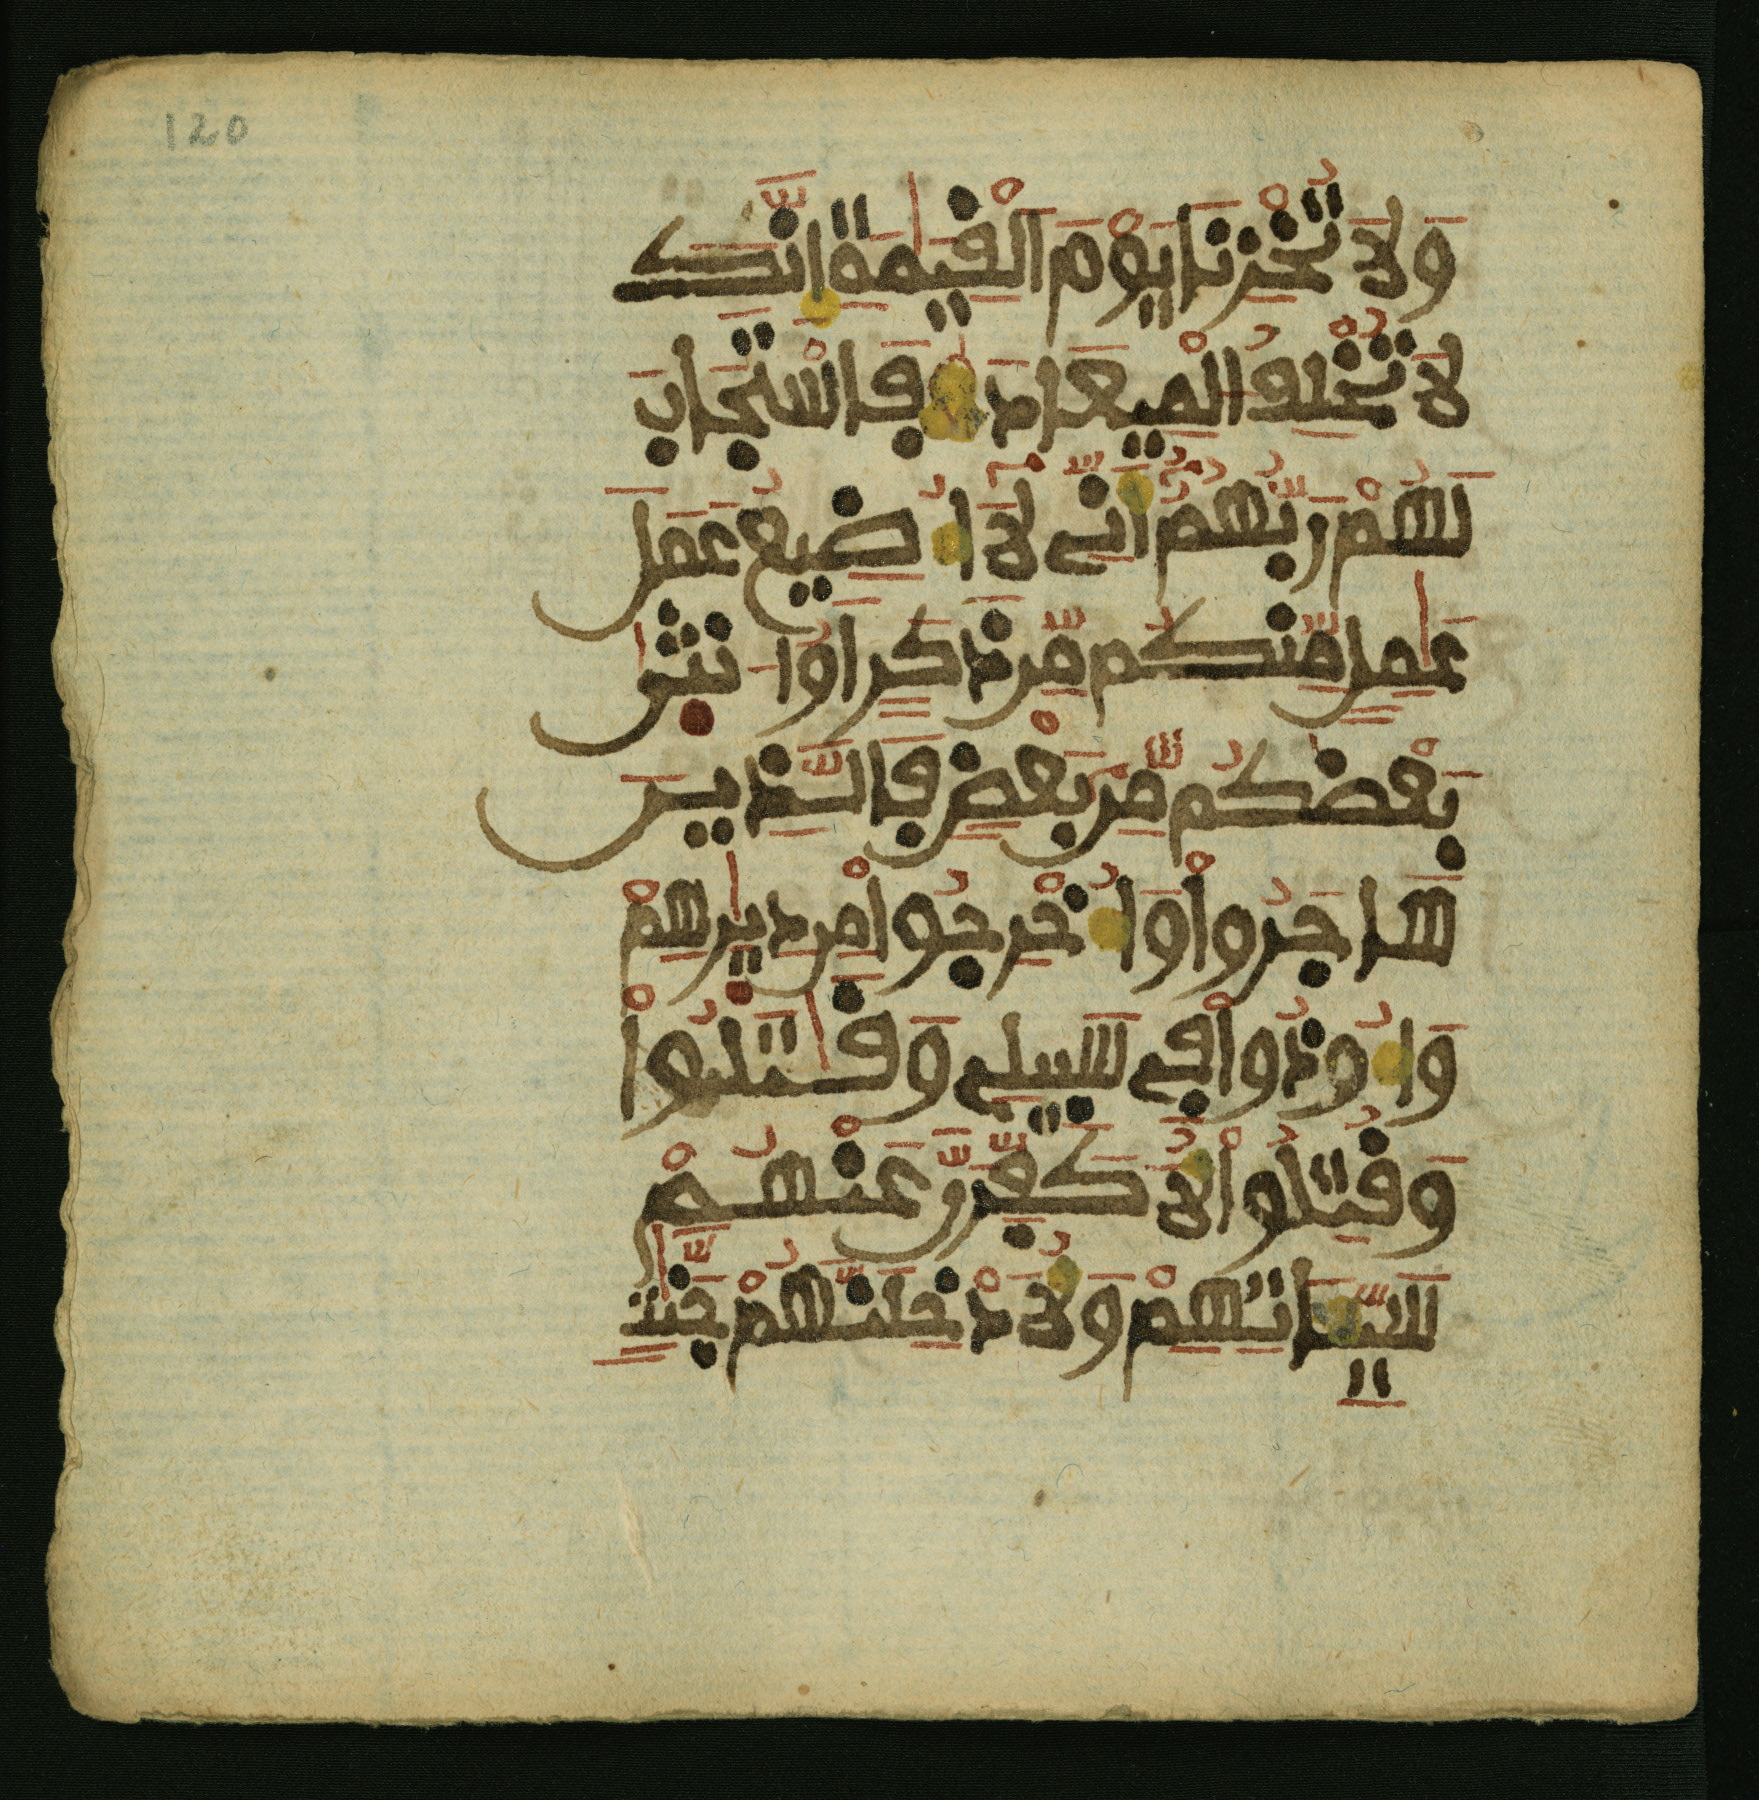 120
وَلَا تُخْزِنَا يَوْمَ اَلْقِيَٰمَةِ إِنَّكَ
لَا تُخْلِفُ اُلْمِيعَادَ فَاسْتَجَابَ
لَهُمْ رَبُّهُمُۥٓ أَنِّے لَآ أُضِيعُ عَمَلَ
عَٰمِلٍ مِّنكُم مِّن ذَكَرٍ اَوُ انث۪ىٰ
بَعْضُكُم مِّنۢ بَعْضٍ فَالَّذِينَ
هَاجَرُواْ وَأُخْرِجُواْ مِن دِيٰ۪رِهِمْ
وَأُوذُواْ فِے سَبِيلِے وَقَٰتَلُواْ
وَقُتِلُواْ لَأُكَفِّرَنَّ عَنْهُمْ
سَيِّـَٔاتِهِمْ وَلَأُدْخِلَنَّهُمْ جَنَّٰتٍ